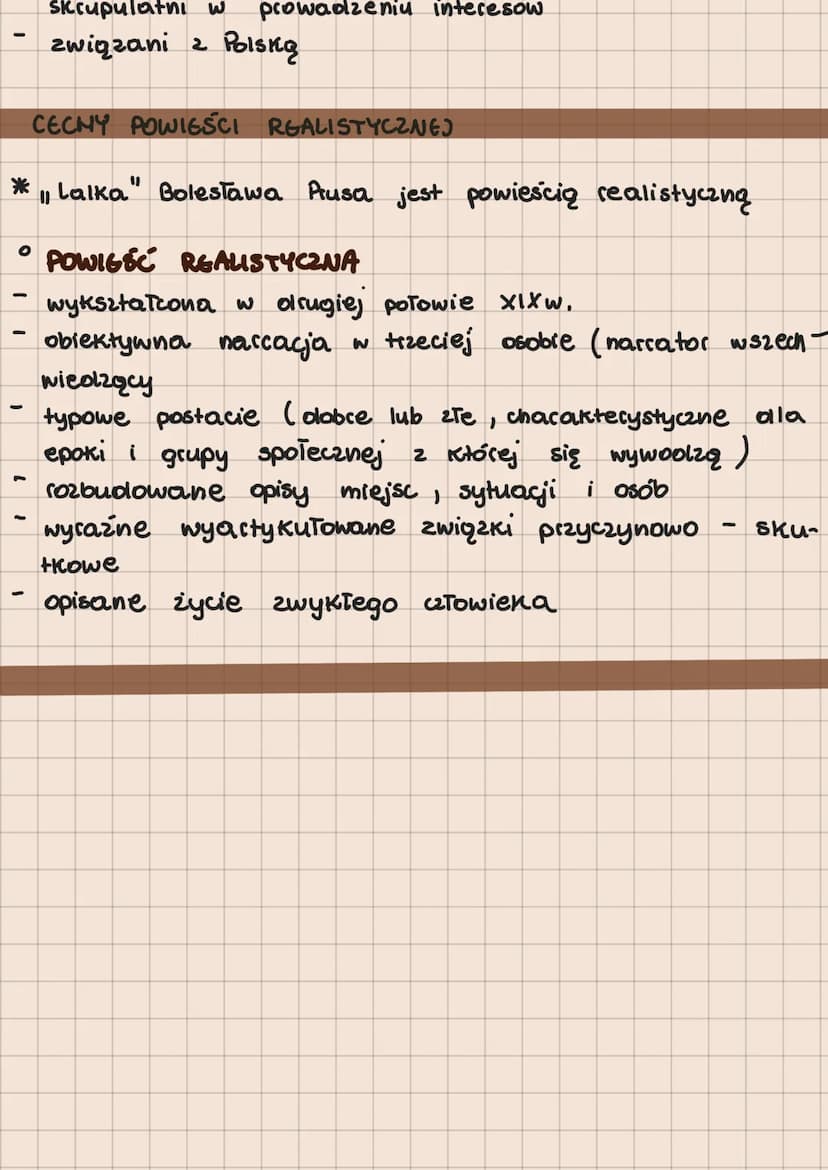 skrupulatni w prowadzeniu interesów
- związani z Polską
CECHY POWIEŚCI REALISTYCZNEJ
* „Lalka" Bolesława Prusa jest powieścią realistyczną
° POWIEŚĆ REALISTYCZNA
- wykształcona w drugiej połowie XIXw.
- obiektywna narracja w trzeciej osobie (narrator wszech-
wiedzący
- typowe postacie (dobre lub złe, charakterystyczne dla
epoki i grupy społecznej z której się wywodzą)
- rozbudowane opisy miejsc, sytuacji i osób
- wyraźne wyartykułowane związki przyczynowo - sku-
tkowe
- opisane życie zwykłego człowieka